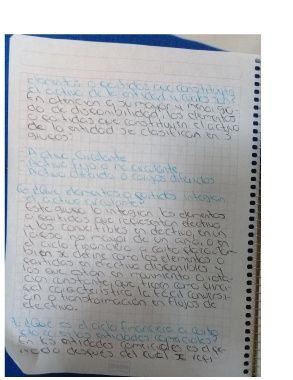 elementos o partidas que constituyen
el activo de la entidad y cuales son?
En atención a su mayor y menor gra-
do de disponibilidad, los elementos
o partidas que constituyen el activo
de la entidad se clasifican en 3
grupos:
Activo circulante
Activo fijo o no circulante
Activo diferido o cargos diferidos
6. ¿Que elementos o partidas integran
el activo circulante?
Este grupo lo integran los elementos
o partidas que representan efectivo
y los convertibles en efectivo, en un
plazo no mayor de un año, o en
el ciclo financiero a corto plazo, tam-
bien se define como los elementos o
partidas en efectivo disponibles y
los que estan en movimiento o rota-
ción constante, que tienen como princi-
pal caracteristica la facil conversi-
ón o transformación en flujos de
efectivo.
7. ¿Que es el ciclo financiero a corto
plazo en las entidades comerciales?
En las entidades comerciales es el pe-
riodo después del cual se